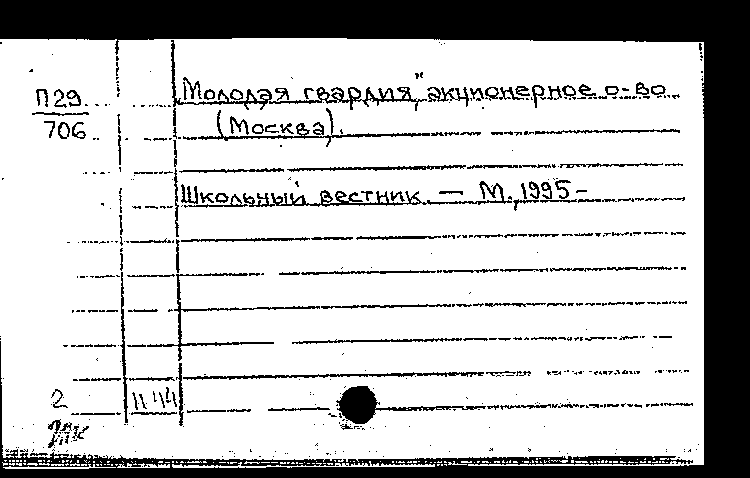 П29
706
„Молодая гвардия", акционерное о-во
(Москва).
Школьный вестник. — М., 1995 -
2